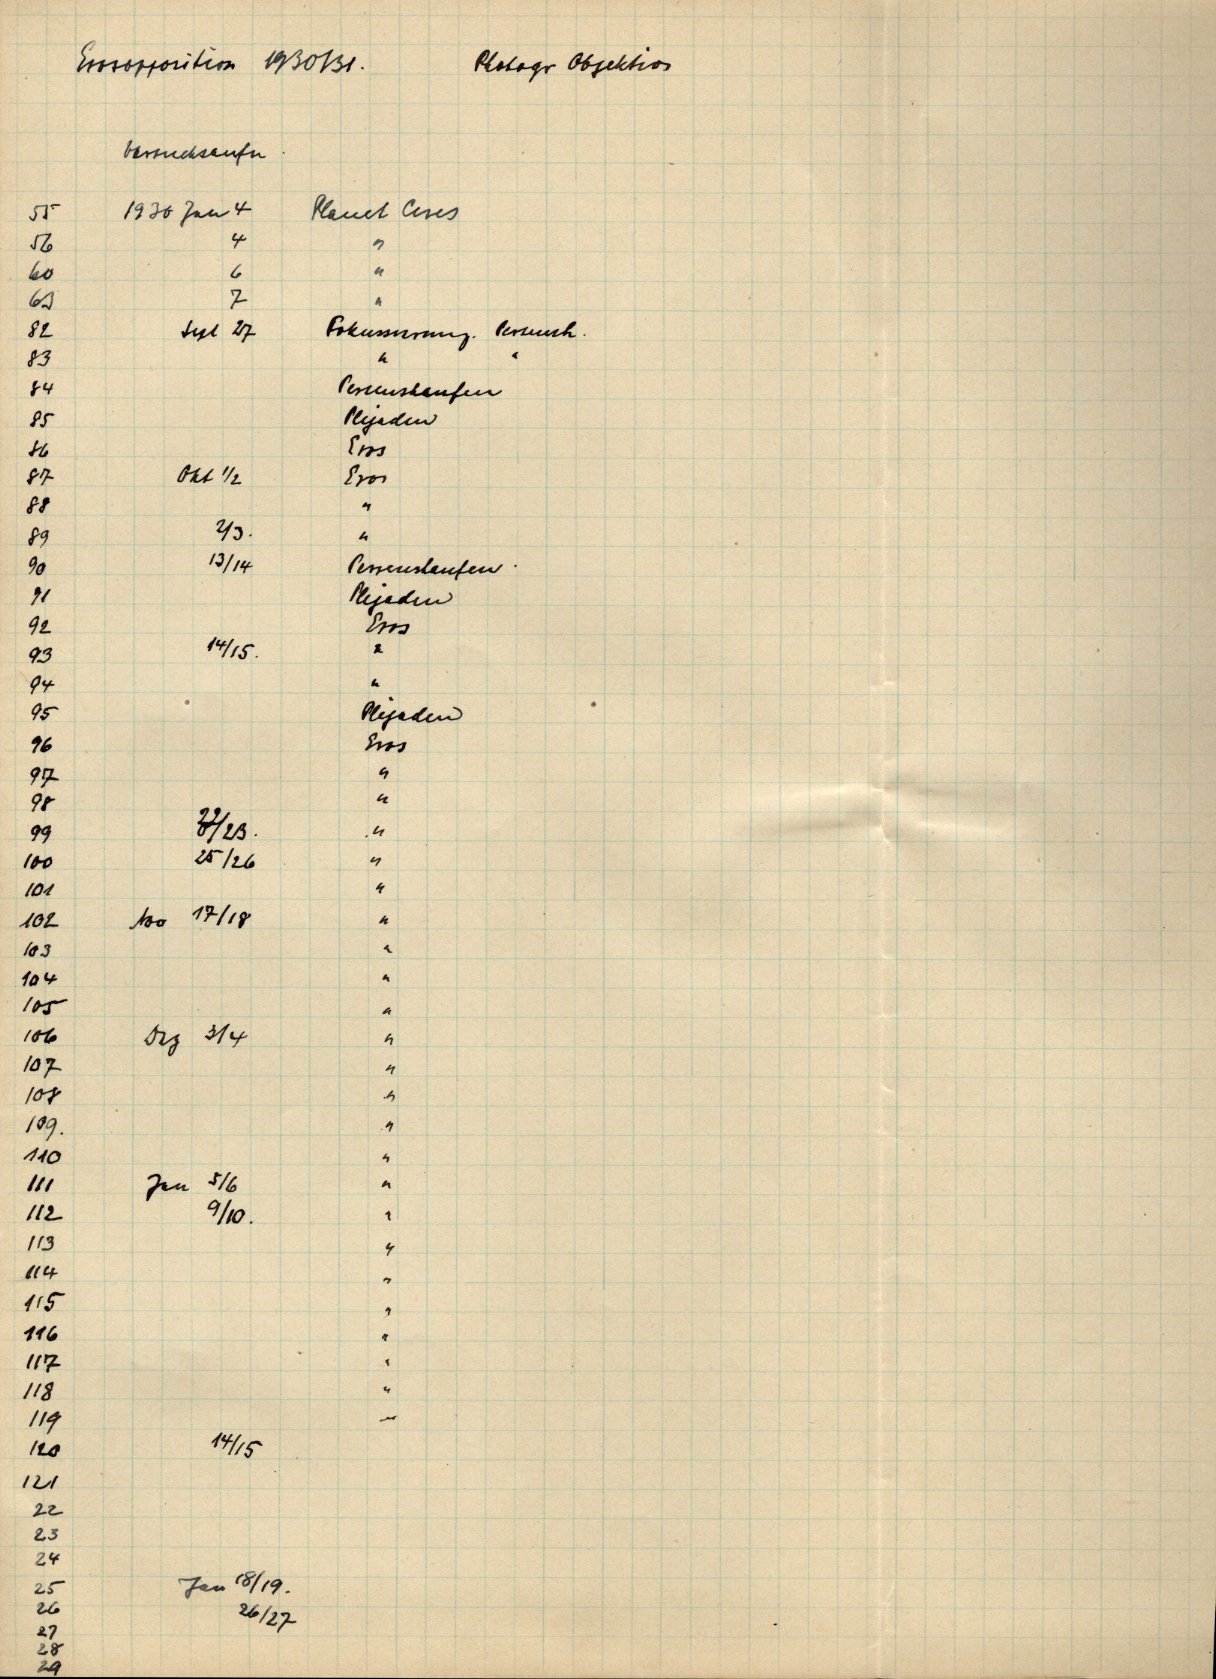 Erosopposition 1930/31. Photogr Objektiv
Versuchsaufn.
55 1930 Jan 4 Planet Ceres
56 4 "
60 6 "
63 7 "
82 Sept 27 Fokussierung. Perseush.
83 " "
84 Perseushaufen
85 Plejaden
86 Eros
87 Okt 1/2 Eros
88 "
89 2/3. "
90 13/14 Perseushaufen.
91 Plejaden
92 Eros
93 14/15. "
94 "
95 Plejaden
96 Eros
97 "
98 "
99 22/23. "
100 25/26 "
101 "
102 Nov 17/18 "
103 "
104 "
105 "
106 Dez 3/4 "
107 "
108 "
109. "
110 "
111 Jan 5/6 "
112 9/10. "
113 "
114 "
115 "
116 "
117 "
118 "
119 "
120 14/15
121
22
23
24
25 Jan 18/19.
26 26/27
27
28
29